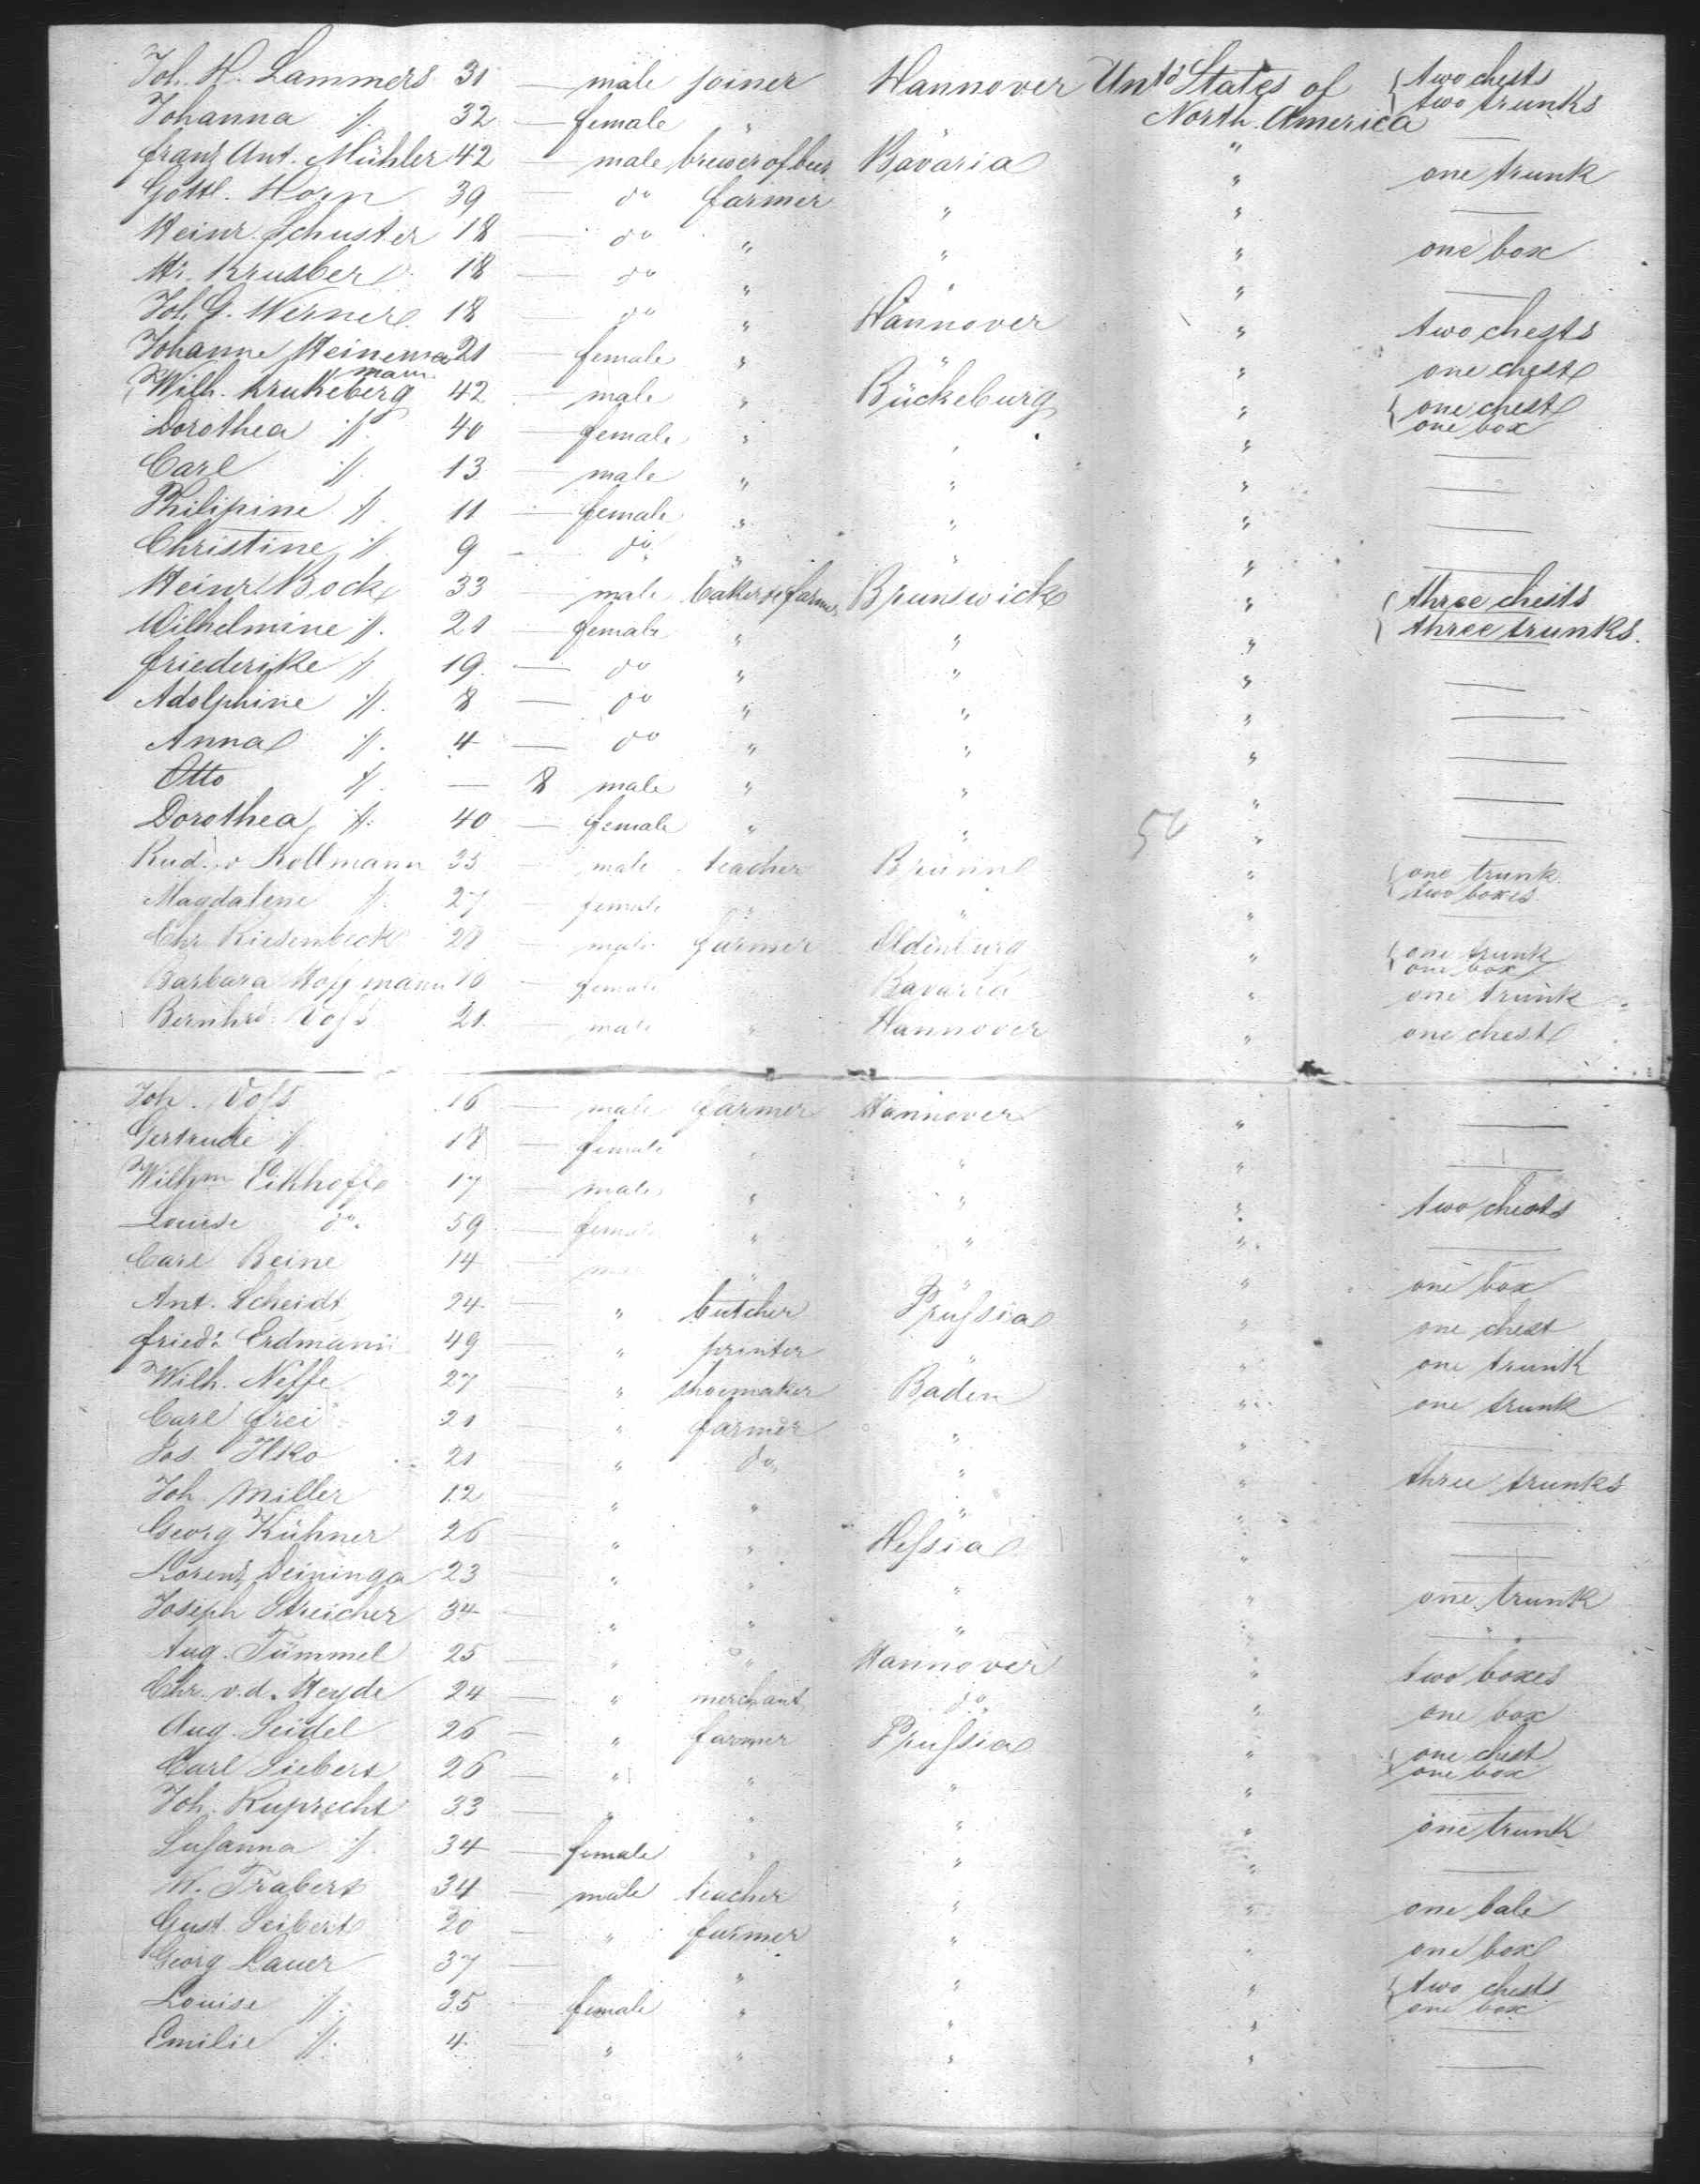 Joh. H. Lammers 31 — male joiner Hannover Untd States of North America { two chests two trunks
Johanna //. 32 — female " " " —
Franz Ant. Mühler 42 — male brewer of beer Bavaria " one trunk
Gottl. Horn 39 — do farmer " " —
Heinr. Schuster 18 — do " " " one box
Hr. Krusber 18 — do " " " —
Joh. G. Werner 18 — do " Hannover " two chests
Johanne Heinemann 21 — female " " " one chest
Wilh. Krukeberg 42 — male " Bückeburg " { one chest one box
Dorothea //. 40 — female " " " —
Carl //. 13 — male " " " —
Philipine //. 11 — female " " " —
Christine //. 9 — do " " " —
Heinr. Bock 33 — male baker & farmer Brunswick " { three chests three trunks.
Wilhelmine //. 21 — female " " "
Friederike //. 19. — do " " " —
Adolphine //. 8 — do " " " —
Anna //. 4 — do " " " —
Otto //. — 8 male " " " —
Dorothea //. 40 — female " " " —
56
Rud. v Kollmann 35 — male teacher Brünn " { one trunk two boxes
Magdalene //. 27 — female " " "
Chr. Riesenbeck 28 — male farmer Oldenburg " { one trunk one box
Barbara Hoffmann 10 — female Bavaria " one trunk
Bernhrd. Voss 21. — male " Hannover " one chest
Joh. Voss 16 — male farmer Hannover " —
Gertrude //. 18 — female " " " —
Wilhm Eikhoff 17 — male " " " two chests
Louise do. 59 — female " " " —
Carl Beine 14 — " " " one box
Ant. Scheidt 24 — " butcher Prussia " one chest
Friedr. Erdmann 49 — " printer " " one trunk
Wilh. Neffe 27 — " shoemaker Baden " one trunk
Carl Frei 21 — " farmer " " —
Jos. Ilko 21 — " do " " three trunks
Joh. Miller 12 — " " " " —
Georg Kühner 26 — " " Hessia " —
Lorenz Deininga 23 — " " " " one trunk
Joseph Streicher 34 — " " " " —
Aug. Tümmel 25 — " " Hannover " two boxes
Chr. v. d. Heyde 24 — " merchant do. " one box
Aug. Seidel 26 — " farmer Prussia " { one chest one box
Carl Siebert 26 — " " " " —
Joh. Ruprecht 33 — " " " " one trunk
Susanna //. 34 — female " " " —
W. Trabert 34 — male teacher " " one bale
Gust. Seibert 20 — " farmer " " one box
Georg Lauer 37 — " " " { two chests one box
Louise //. 35 — female " " " —
Emilie //. 4. " " " " —